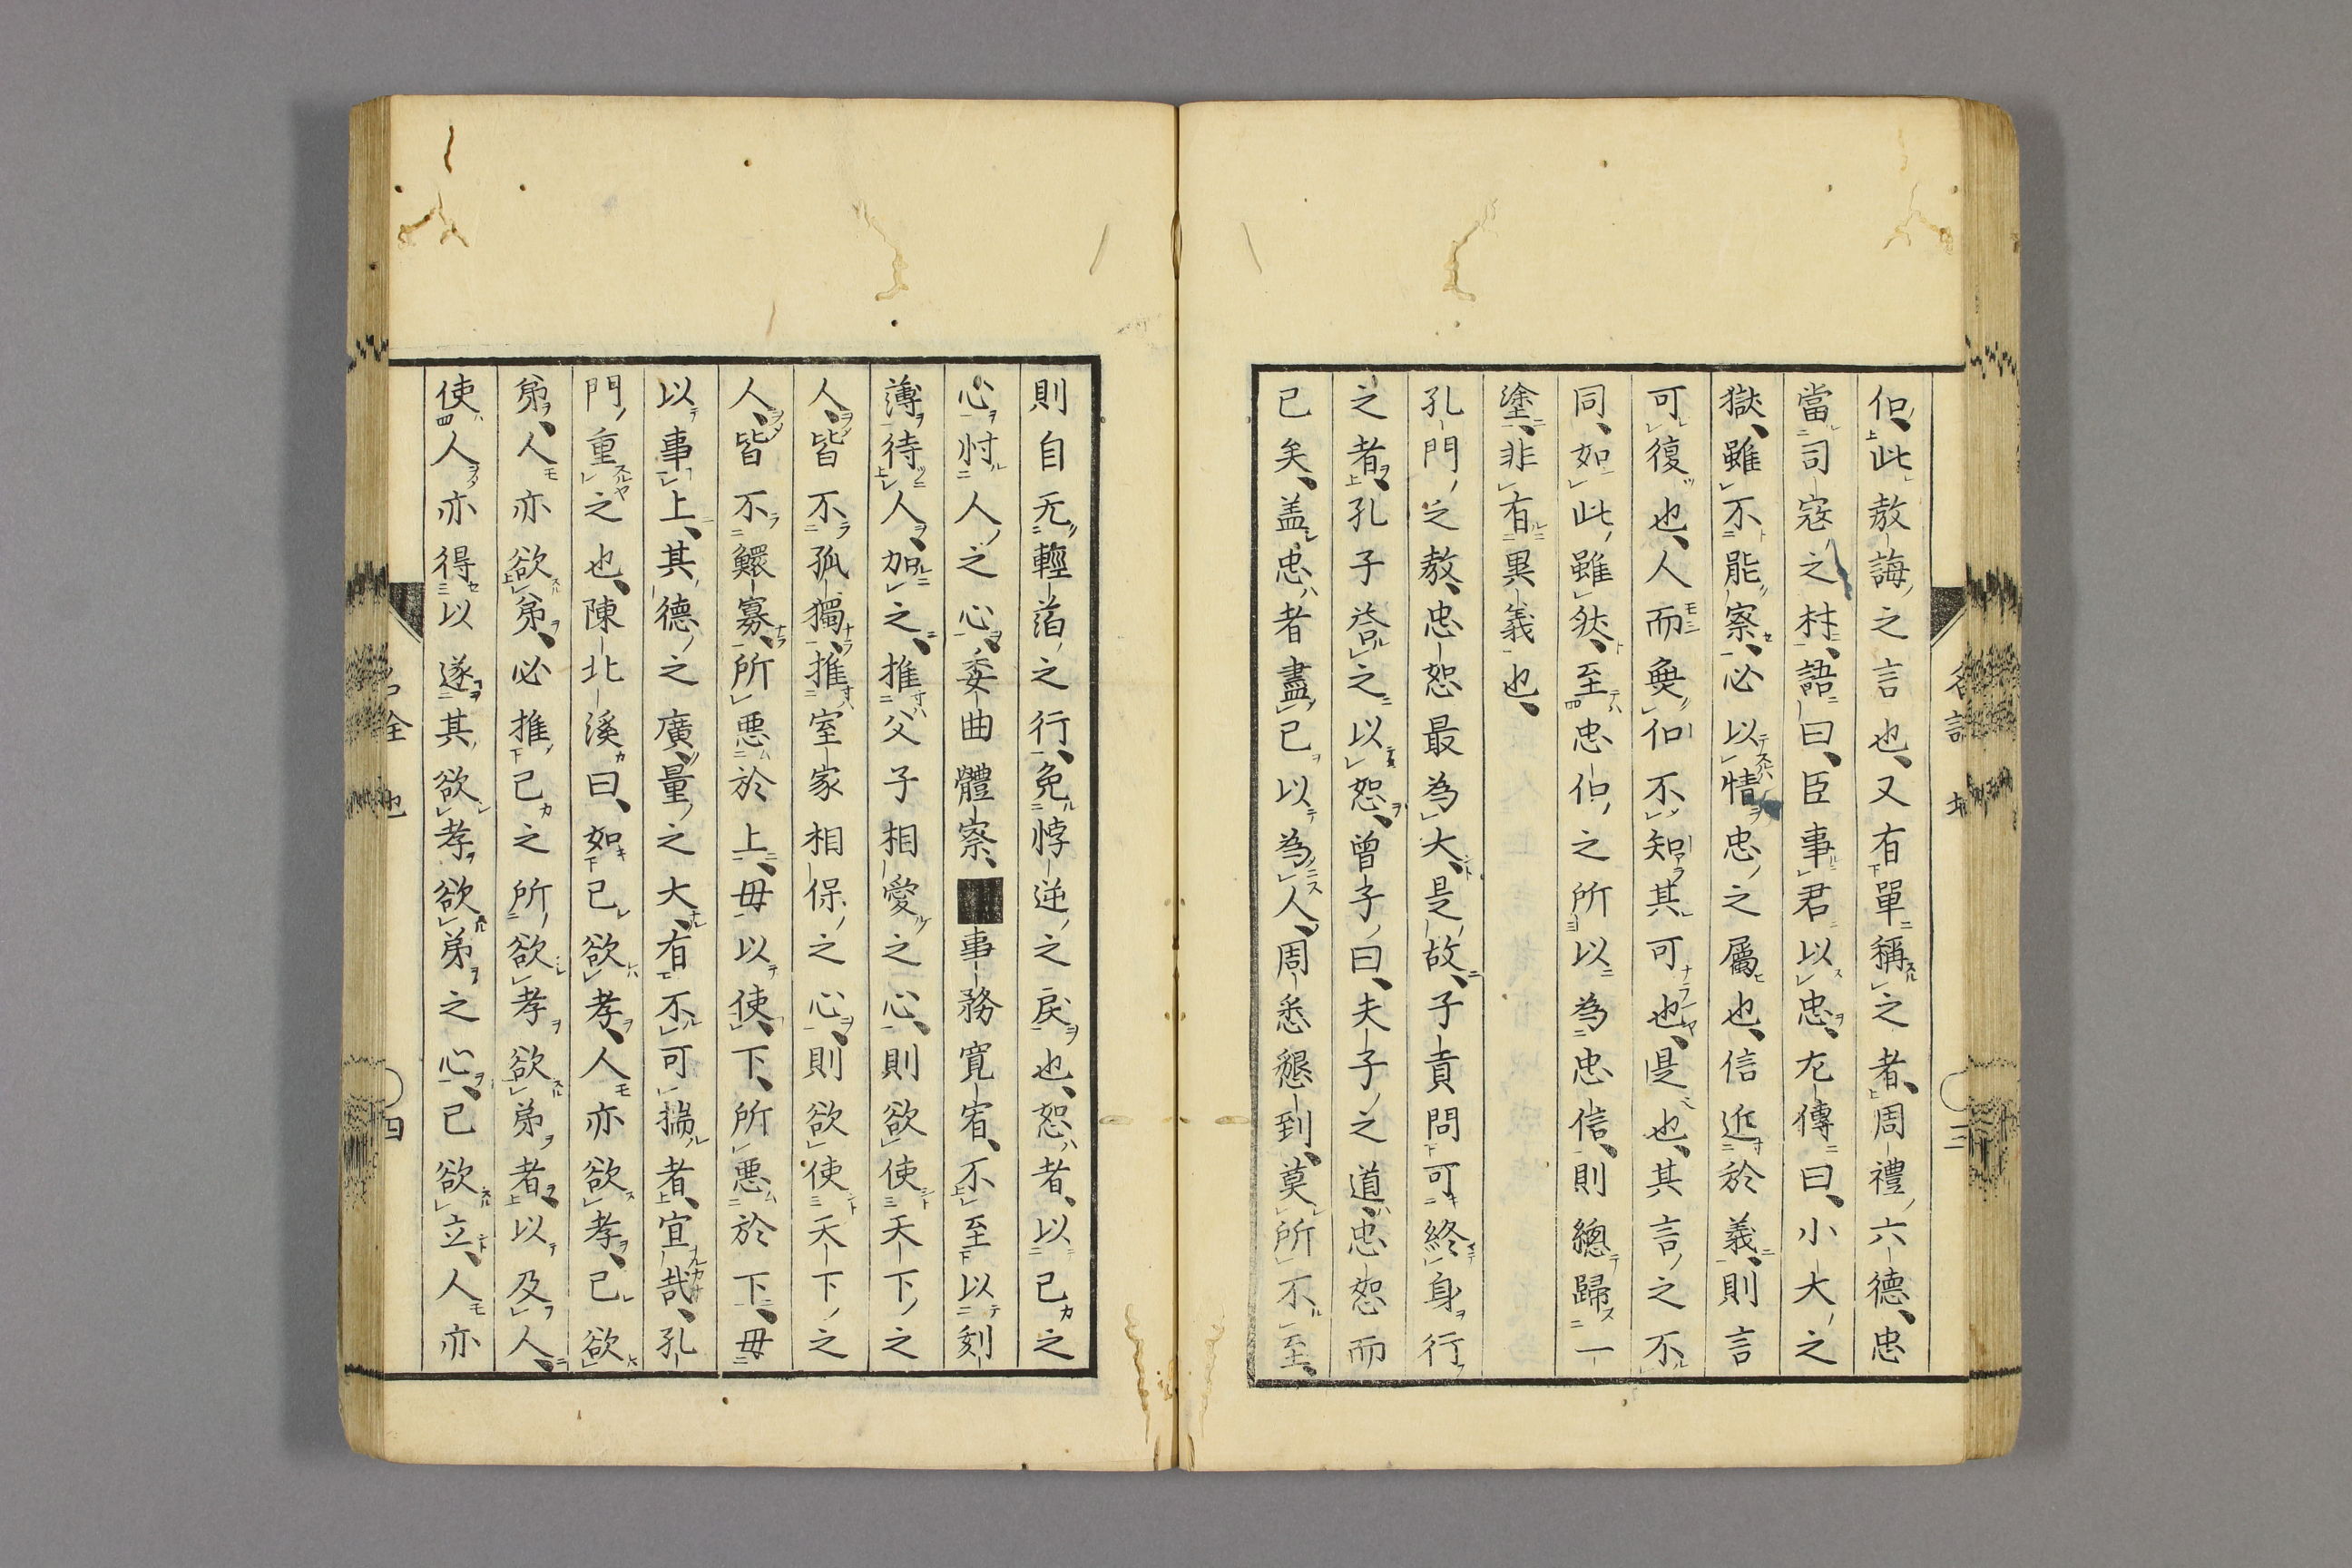 伿此敎誨之言也又有單稱之者周禮六德忠
當司寇之材語曰臣事君以忠左傳曰小大之
獄雖不能察必以情忠之屬也信近於義則言
可復也人而無伿不知其可也是也其言之不
同如此雖然至忠伿之所以為忠信則總歸一
塗非有異義也
孔門之敎忠恕最為大是故子貢問可終身行
之者孔子荅之以恕曾子曰夫子之道忠恕而
已矣盖忠者盡己以為人周悉懇到莫所不至
則自无輕萡之行免悖逆之戾也恕者以己之
心忖人之心委曲體察■事務寬宥不至以刻
薄待人加之推父子相愛之心則欲使天下之
人皆不孤獨推室家相保之心則欲使天下之
人皆不鰥寡所悪於上毋以使下所悪於下毋
以事上其德之廣量之大有不可揣者宜哉孔
門重之也陳北溪曰如己欲孝人亦欲孝己欲
弟人亦欲弟必推己之所欲孝欲弟者以及人
使人亦得以遂其欲孝欲弟之心己欲立人亦